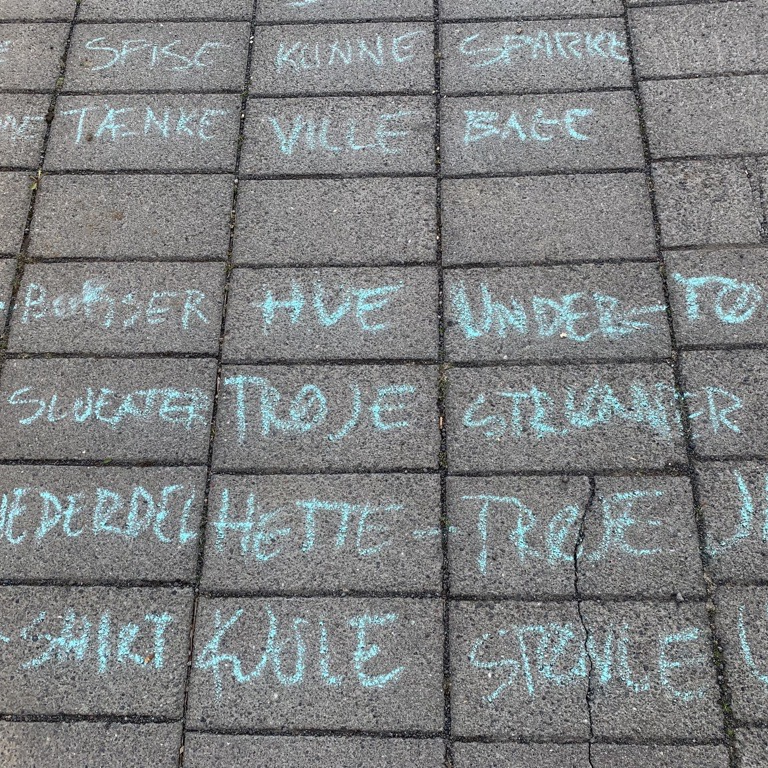 SPISE KUNNE SPARKE
TÆNKE VILLE BAGE
HUE UNDER-TØ
SWEATER TRØJE STRØMPER
NEDERDEL HETTE-TRØJE
-SHIRT KJOLE STØVLE